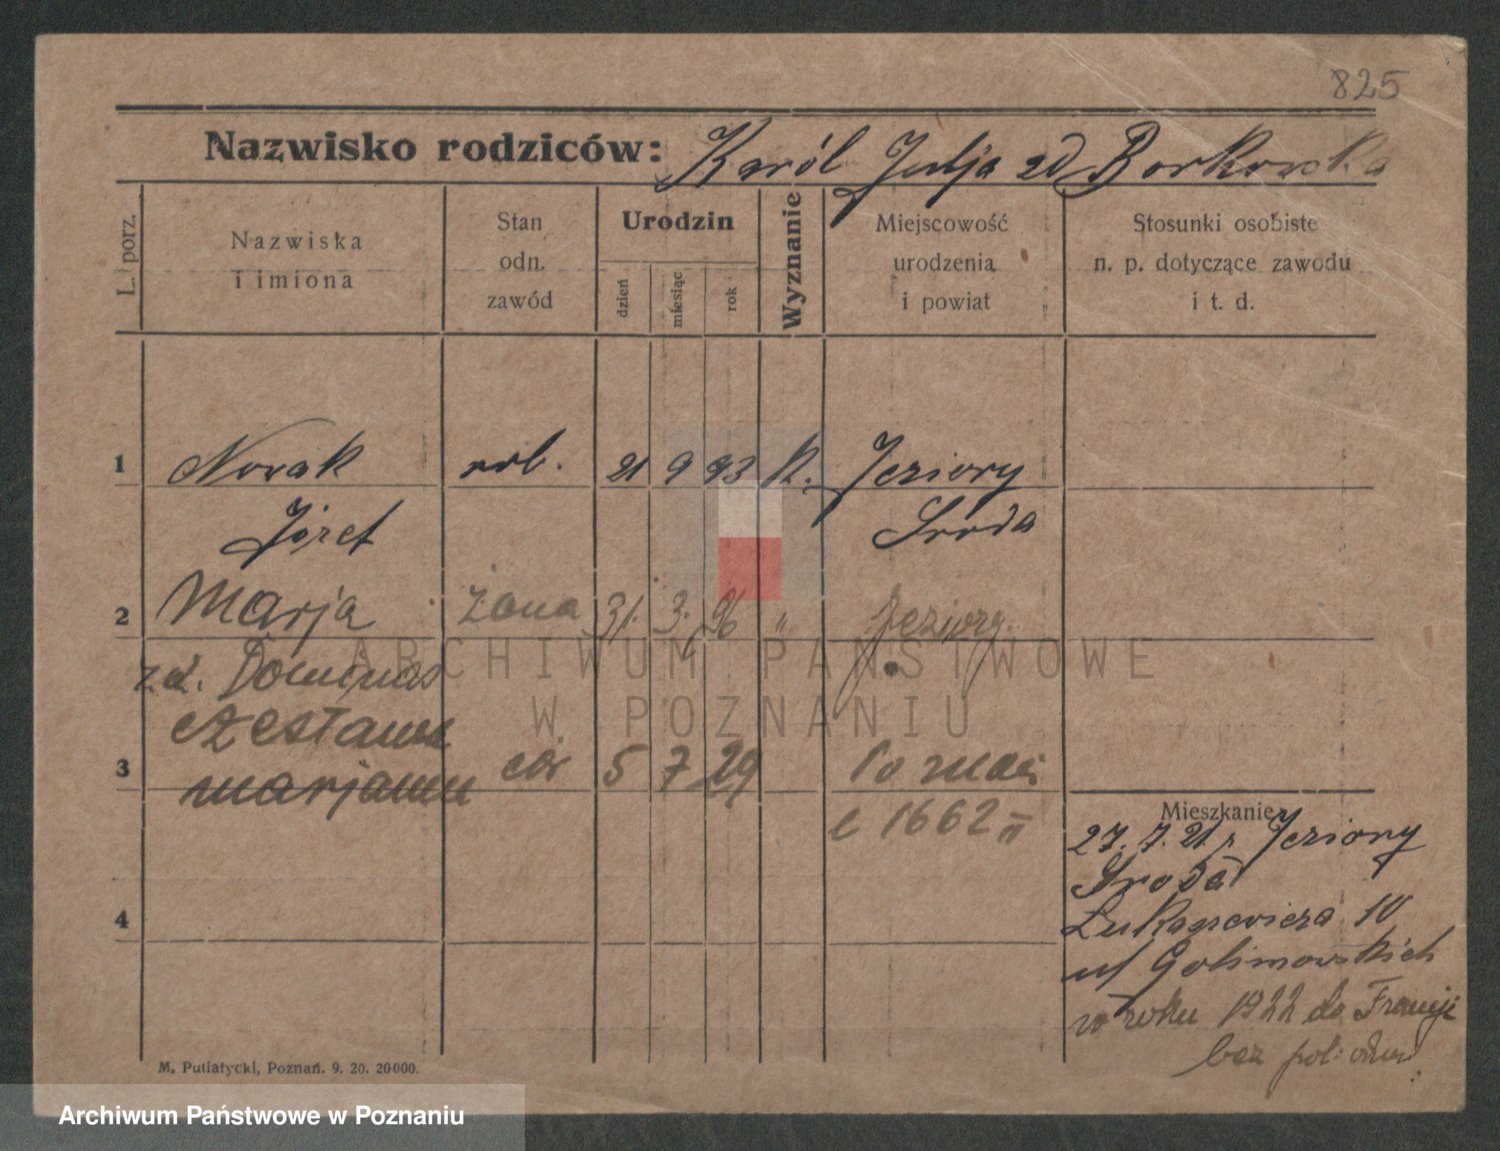 825
Nazwisko rodziców: Karól Julja zd Borkowska
L. porz.
Nazwiska
i imiona
Stan
odn.
zawód
Urodzin
dzień
miesiąc
rok
Wyznanie
Miejscowość
urodzenia
i powiat
Stosunki osobiste
n. p. dotyczące zawodu
i t. d.
1 Nowak rob. 21 9 93 K. Jeziory
Józef Sroda
2 Marja żona 31. 3. 96 " Jeziory.
zd.
3 cór. 5 7 29 Poznań
c 1662 II
Mieszkanie
27. 7. 21 z Jeziory
Sroda
Łukaszewicza 10
u/ Golimowskich
w roku 1922 do Francji
bez
4
M. Putiatycki, Poznań. 9. 20. 20000.
ARCHIWUM PAŃSTWOWE
W POZNANIU
Archiwum Państwowe w Poznaniu